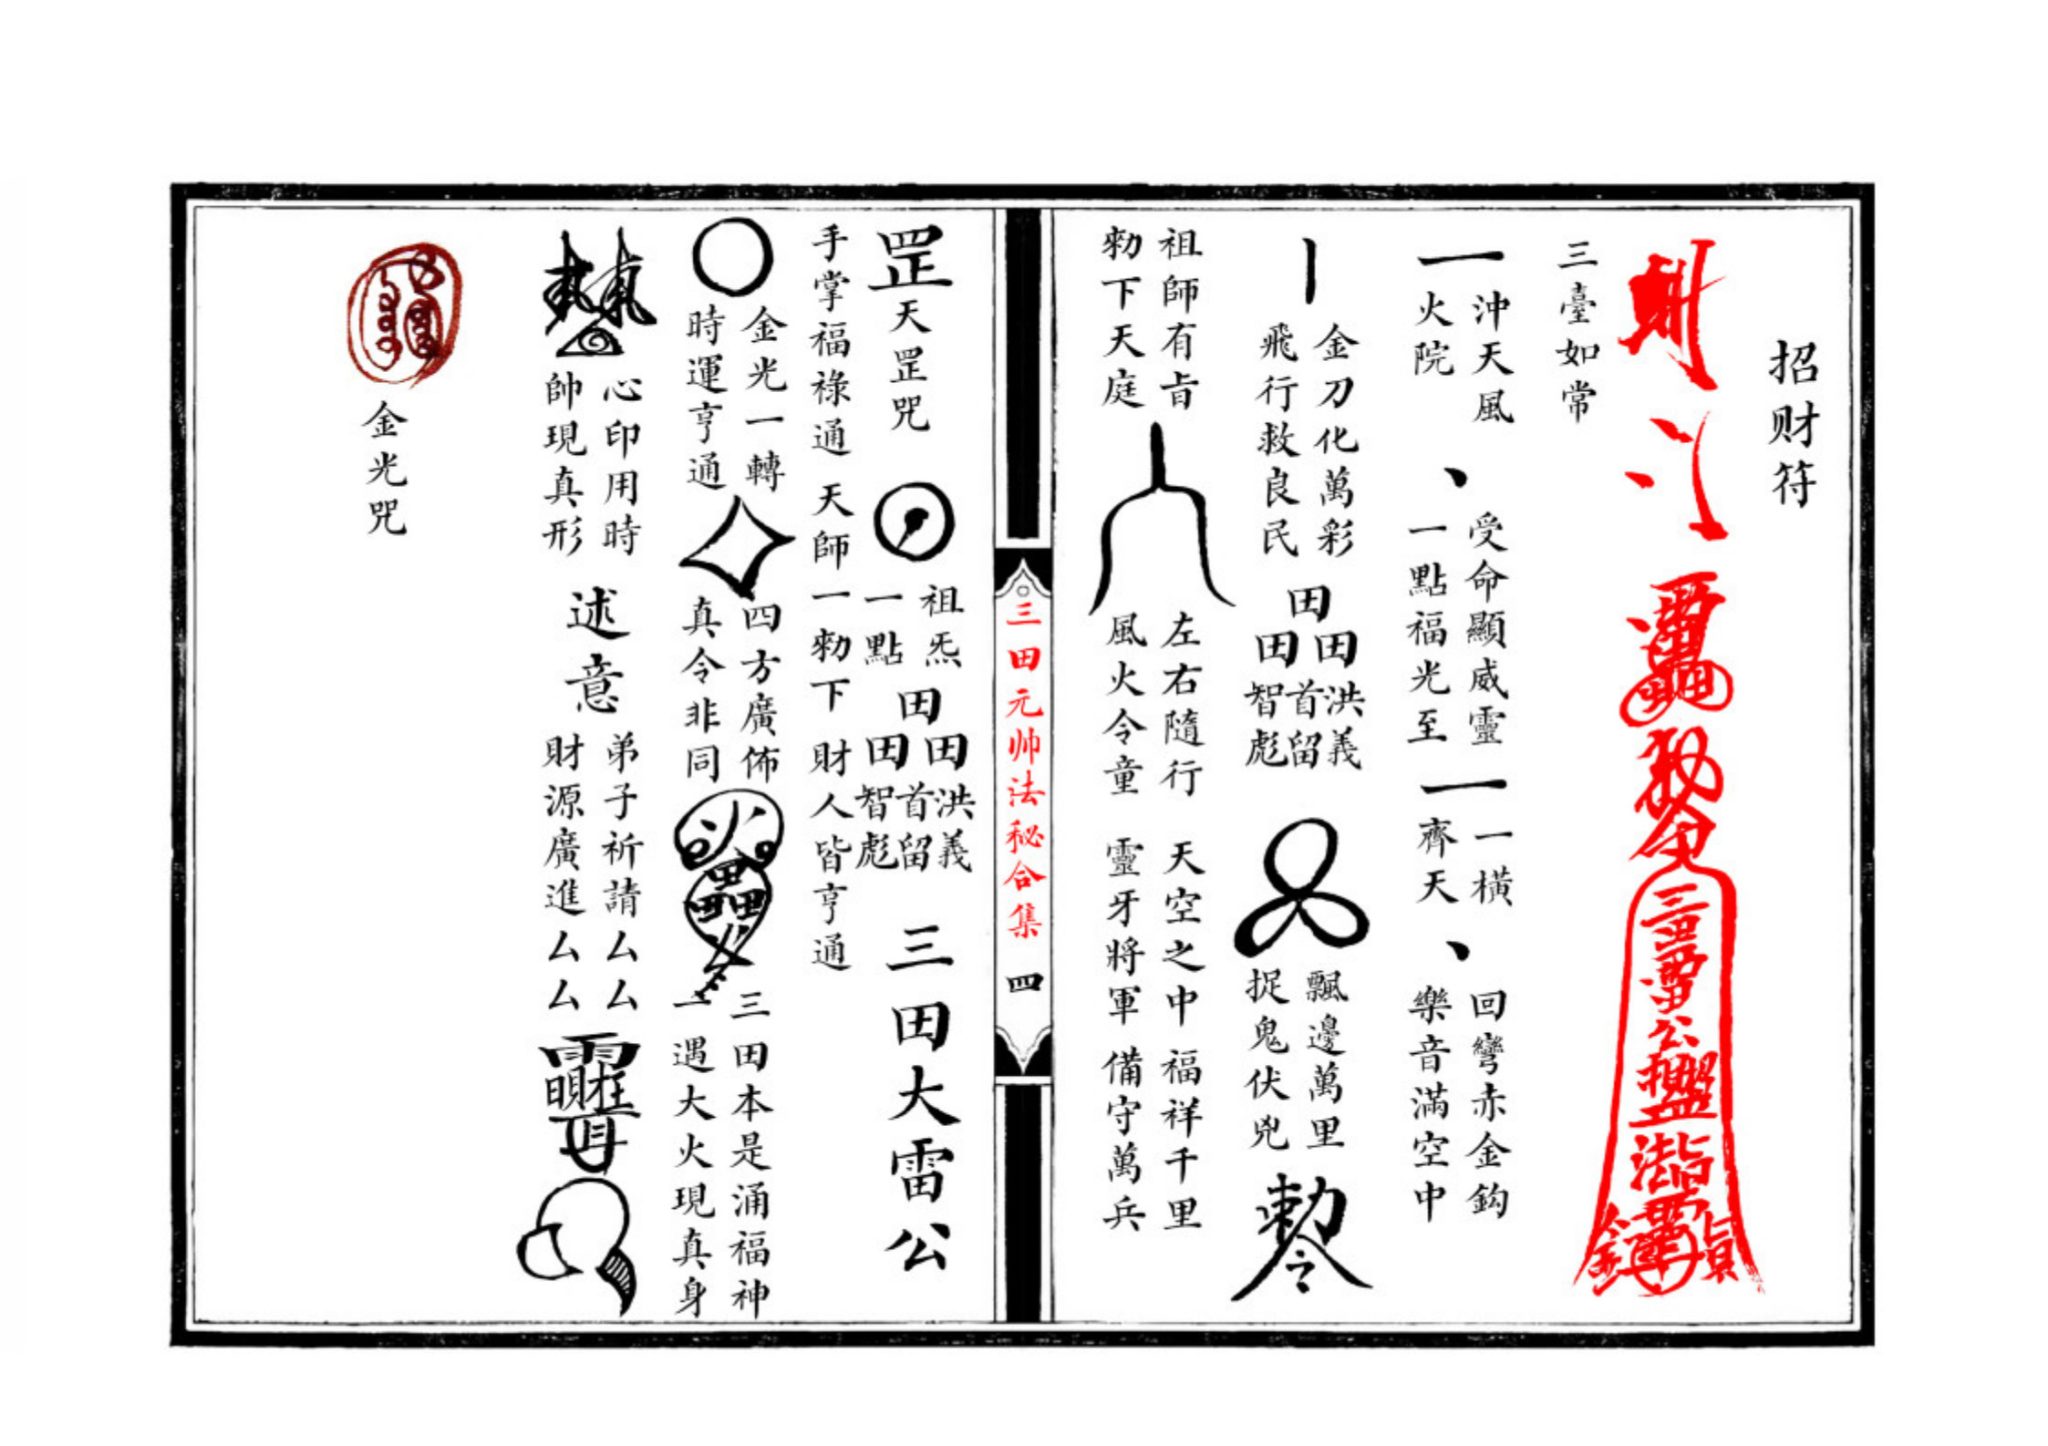 招财符
三臺如常
一
沖天風
火院
丶
受命顯威靈
一點福光至
一
一橫
齊天
丶
回彎赤金鈎
樂音滿空中
丨
金刀化萬彩
飛行救良民
田
田田
洪義
首留
智彪
飄邊萬里
捉鬼伏兇
勅令
祖師有㫖
勑下天庭
左右隨行
風火令童
天空之中
靈牙將軍
福祥千里
備守萬兵
三田元帅法秘合集
四
罡
天罡咒
祖炁
一點
田
田田
洪義
首留
智彪
三田大雷公
手掌福祿通
天師一勑下
財人皆亨通
金光一轉
時運亨通
四方廣佈
真令非同
三田本是涌福神
一遇大火現真身
心印用時
帥現真形
述意
弟子祈請厶厶
財源廣進厶厶
金光咒